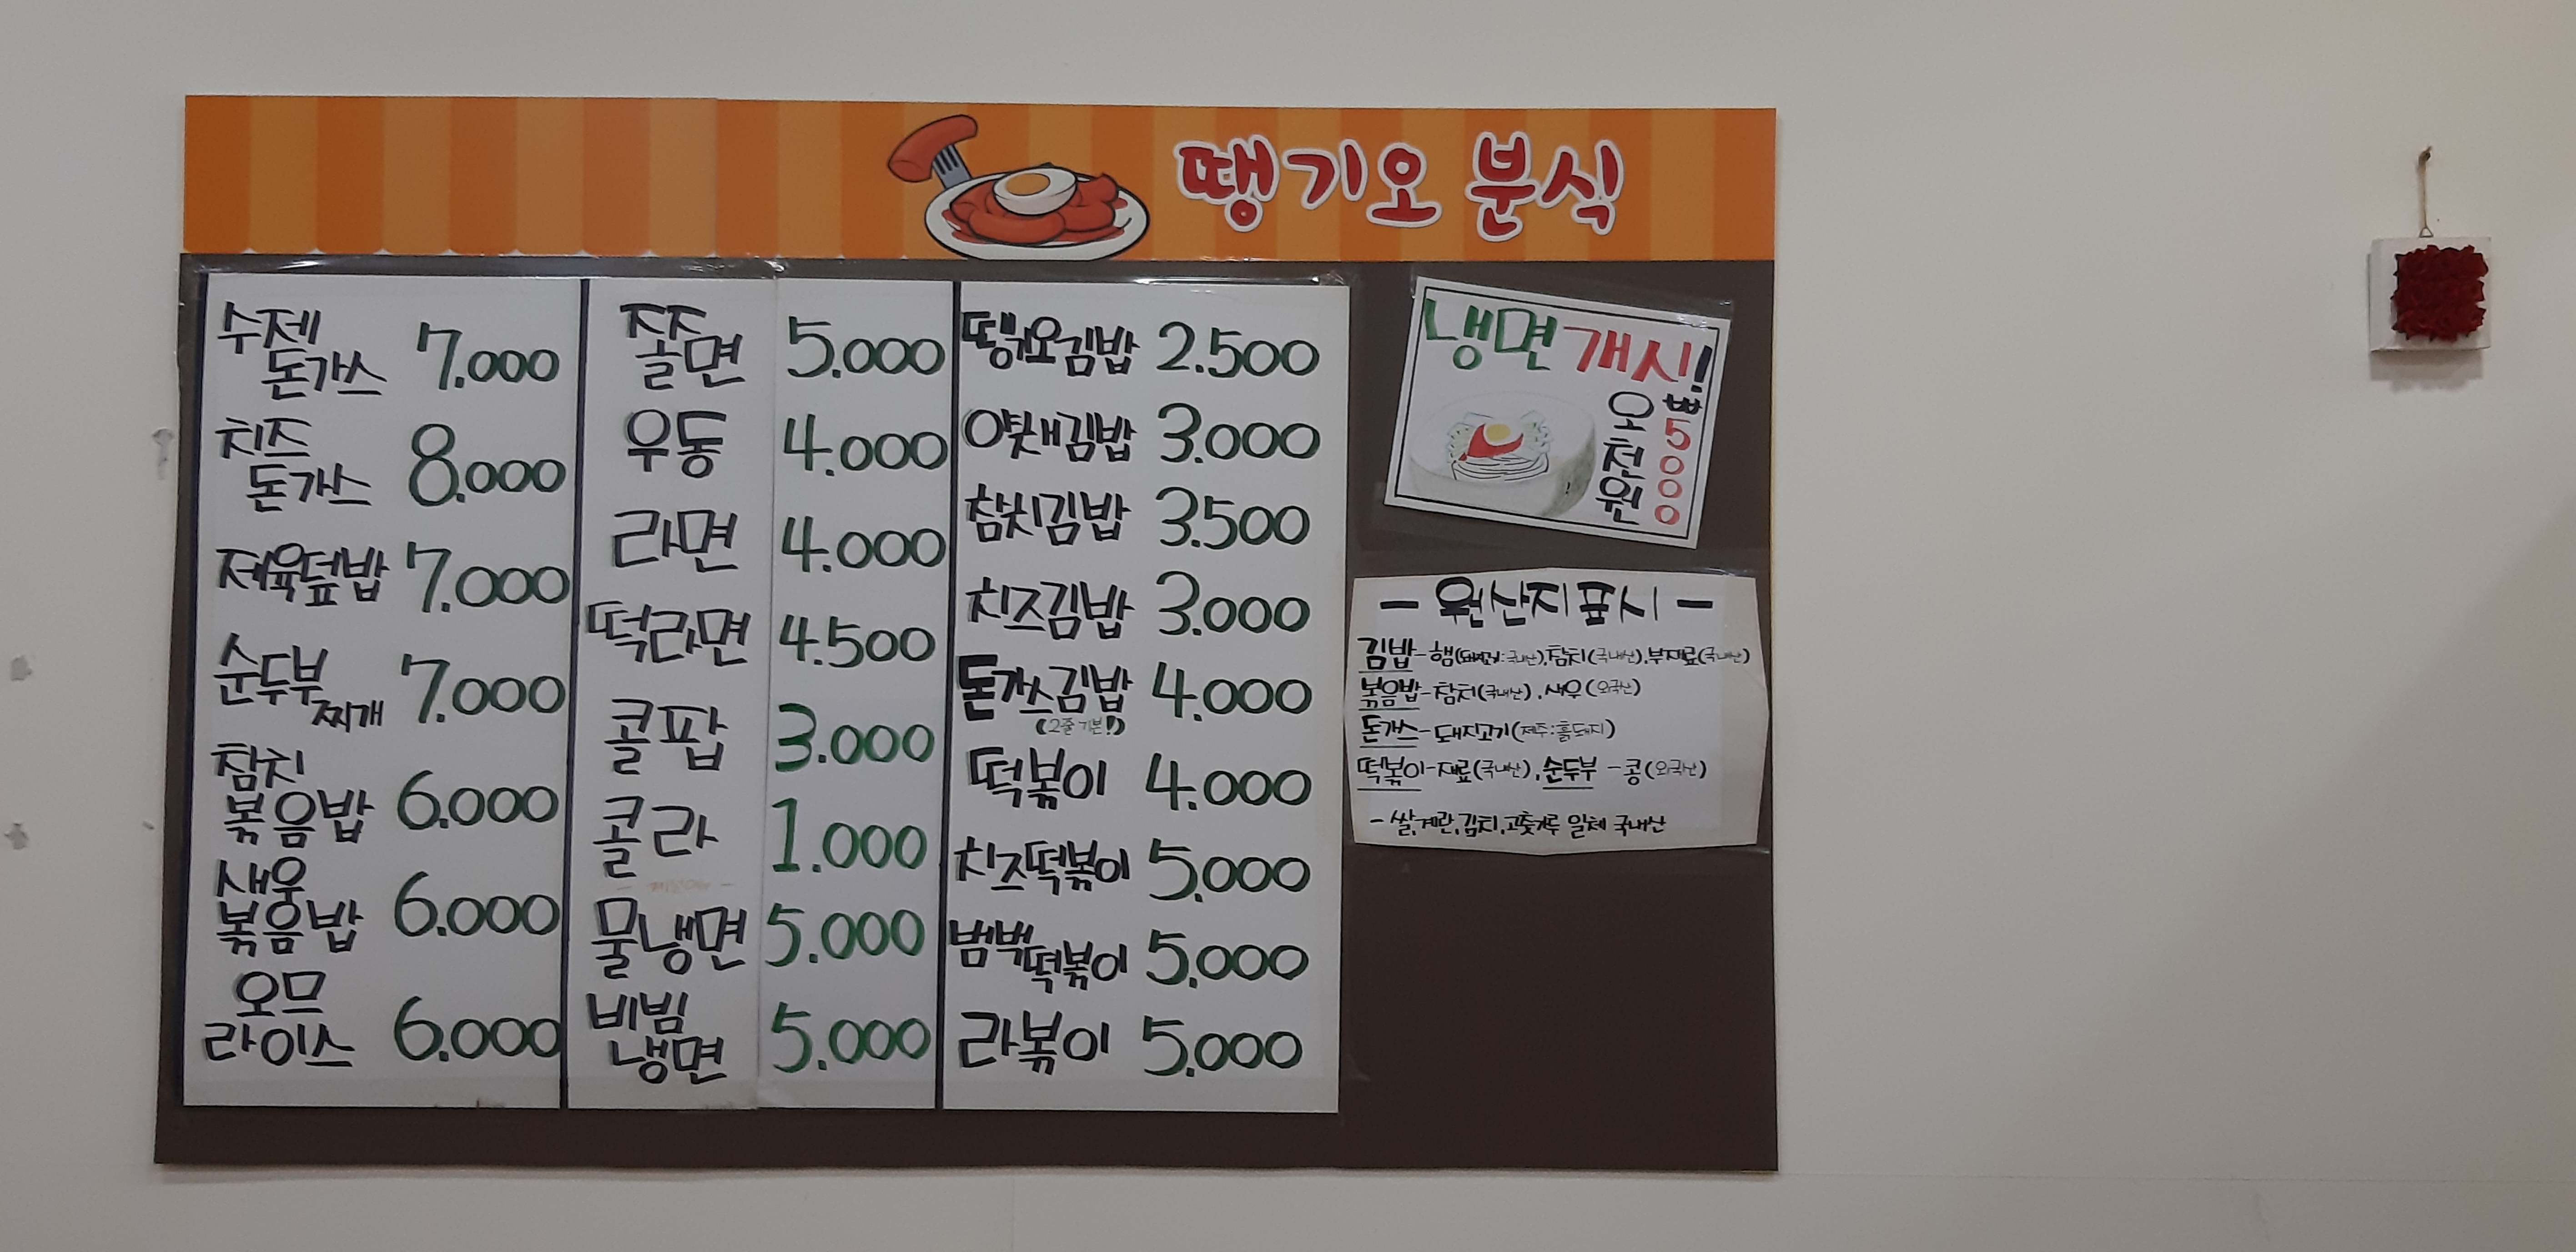 땡기오 분식
수제
돈가스 7.000
치즈
돈가스 8.000
제육덮밥 7.000
순두부
찌개 7.000
참치
볶음밥 6.000
새우
볶음밥 6.000
오므
라이스 6.000
쫄면 5.000
우동 4.000
라면 4.000
떡라면 4.500
콜팝 3.000
콜라 1.000
물냉면 5.000
비빔
냉면 5.000
땡기오김밥 2.500
야채김밥 3.000
참치김밥 3.500
치즈김밥 3.000
돈가스김밥 4.000
(2줄 기본!)
떡볶이 4.000
치즈떡볶이 5.000
범벅떡볶이 5.000
라볶이 5.000
냉면개시!
오천원
₩5000
- 원산지표시 -
김밥-햄(돼지고기:국내산),참치(국내산),부재료(국내산)
볶음밥-참치(국내산),새우(외국산)
돈가스-돼지고기(제주:흙돼지)
떡볶이-재료(국내산),순두부-콩(외국산)
-쌀,계란,김치,고춧가루 일체 국내산